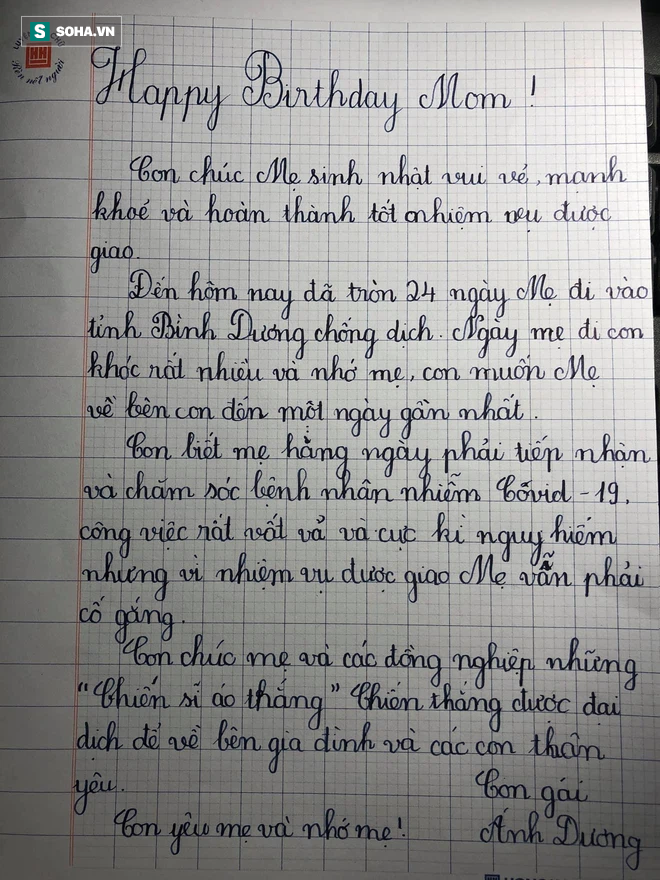 SOHA.VN
Happy Birthday Mom !
Con chúc Mẹ sinh nhật vui vẻ, mạnh
khoẻ và hoàn thành tốt nhiệm vụ được
giao.
Đến hôm nay đã tròn 24 ngày Mẹ đi vào
tỉnh Bình Dương chống dịch. Ngày mẹ đi con
khóc rất nhiều và nhớ mẹ, con muốn Mẹ
về bên con đón một ngày gần nhất.
Con biết mẹ hằng ngày phải tiếp nhận
và chăm sóc bệnh nhân nhiễm Côvid - 19,
công việc rất vất vả và cực kì nguy hiểm
nhưng vì nhiệm vụ được giao Mẹ vẫn phải
cố gắng.
Con chúc mẹ và các đồng nghiệp những
"Chiến sĩ áo thắng" Chiến thắng được đại
dịch để về bên gia đình và các con thân
yêu.
Con gái
Con yêu mẹ và nhớ mẹ!
Ánh Dương